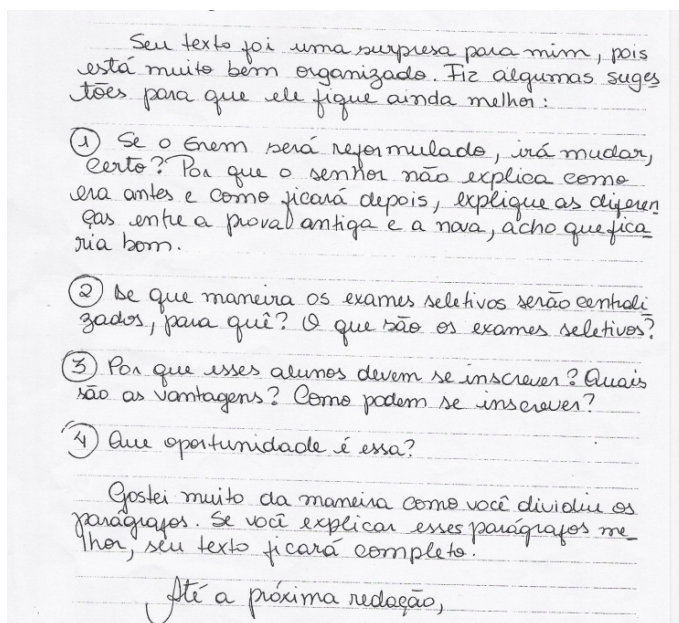 Seu texto foi uma surpresa para mim, pois
está muito bem organizado. Fiz algumas suges
tões para que ele fique ainda melhor:
① Se o Enem será reformulado, irá mudar,
certo? Por que o senhor não explica como
era antes e como ficará depois, explique as diferen
ças entre a prova antiga e a nova, acho que fica
ria bom.
② De que maneira os exames seletivos serão centrali
zados, para quê? O que são os exames seletivos?
③ Por que esses alunos devem se inscrever? Quais
são as vantagens? Como podem se inscrever?
④ Que oportunidade é essa?
Gostei muito da maneira como você dividiu os
parágrafos. Se você explicar esses parágrafos me_
lhor, seu texto ficará completo.
Até a próxima redação,